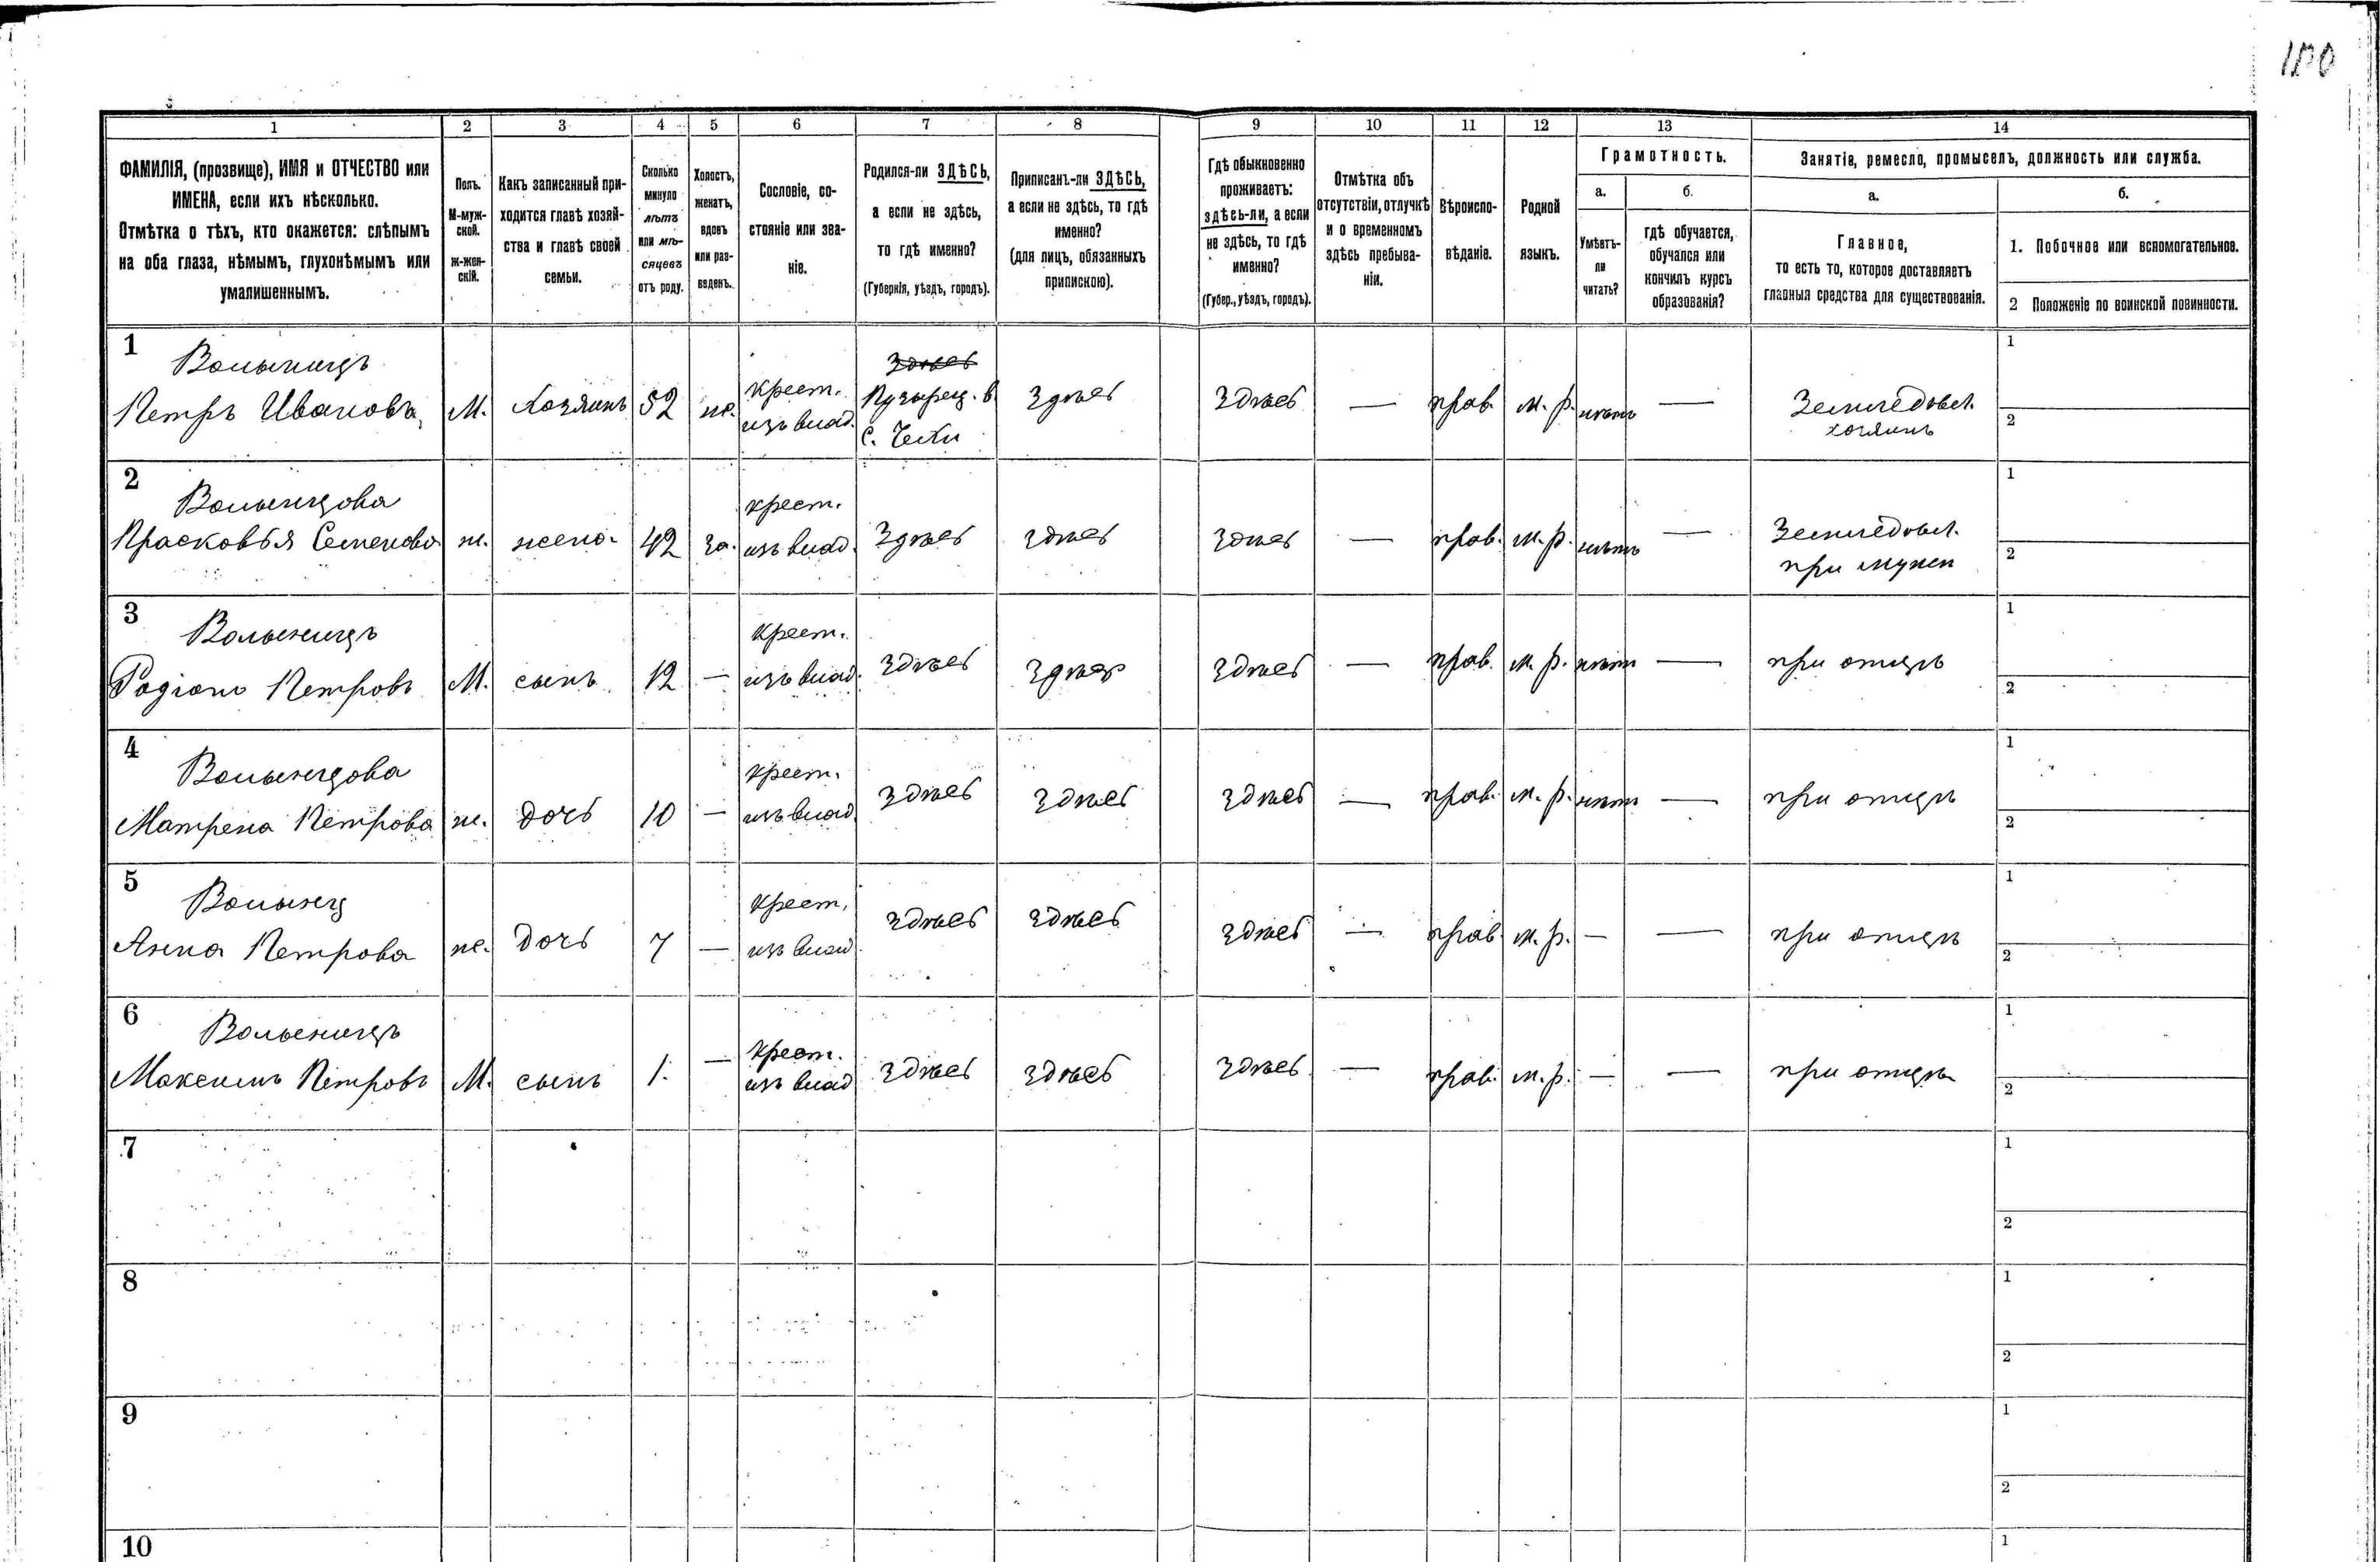 1 2 3 4 5 6 7 8 9 10 11 12 13 14
ФАМИЛІЯ, (прозвище), ИМЯ и ОТЧЕСТВО или
ИМЕНА, если ихъ нѣсколько.
Отмѣтка о тѣхъ, кто окажется: слѣпымъ
на оба глаза, нѣмымъ, глухонѣмымъ или
умалишеннымъ.
Полъ.
М-муж-
ской.
ж-жен-
скій.
Какъ записанный при-
ходится главѣ хозяй-
ства и главѣ своей
семьи.
Сколько
минуло
лѣтъ
или мѣ-
сяцевъ
отъ роду.
Холостъ,
женатъ,
вдовъ
или раз-
веденъ.
Сословіе, со-
стояніе или зва-
ніе.
Родился-ли ЗДѢСЬ,
а если не здѣсь,
то гдѣ именно?
(Губернія, уѣздъ, городъ).
Приписанъ-ли ЗДѢСЬ,
а если не здѣсь, то гдѣ
именно?
(для лицъ, обязанныхъ
припискою).
Гдѣ обыкновенно
проживаетъ:
здѣсь-ли, а если
не здѣсь, то гдѣ
именно?
(Губер., уѣздъ, городъ).
Отмѣтка объ
отсутствіи, отлучкѣ
и о временномъ
здѣсь пребыва-
ніи.
Вѣроиспо-
вѣданіе.
Родной
языкъ.
Грамотность.
а.
Умѣетъ-
ли
читать?
б.
гдѣ обучается,
обучался или
кончилъ курсъ
образованія?
Занятіе, ремесло, промыселъ, должность или служба.
а.
Главное,
то есть то, которое доставляетъ
главныя средства для существованія.
б.
1. Побочное или вспомогательное.
2 Положеніе по воинской повинности.
1
Волынецъ
Петръ Ивановъ
М.
Хозяинъ
52
же.
крест.
изъ влад.
Здѣсь
с.
Здѣсь
Здѣсь
—
прав.
м. р.
нѣтъ
—
Земледѣл.
хозяинъ
1
2
2
Волынцова
Прасковья Семенова
ж.
жена
42
за.
крест.
изъ влад.
Здѣсь
здѣсь
здѣсь
—
прав.
м. р.
нѣтъ
—
Земледѣл.
при мужѣ
1
2
3
Волынецъ
Родіонъ Петровъ
М.
сынъ
12
—
крест.
изъ влад.
здѣсь
здѣсь
здѣсь
—
прав.
м. р.
нѣтъ
—
при отцѣ
1
2
4
Волынцова
Матрена Петрова
ж.
дочь
10
—
крест.
изъ влад.
здѣсь
здѣсь
здѣсь
—
прав.
м. р.
нѣтъ
—
при отцѣ
1
2
5
Волынец
Анна Петрова
ж.
дочь
7
—
крест.
изъ влад.
здѣсь
здѣсь
здѣсь
—
прав.
м. р.
—
—
при отцѣ
1
2
6
Волынецъ
Максимъ Петровъ
М.
сынъ
1.
—
крест.
изъ влад
здѣсь
здѣсь
здѣсь
—
прав.
м. р.
—
—
при отцѣ
1
2
7
1
2
8
1
2
9
1
2
10
1